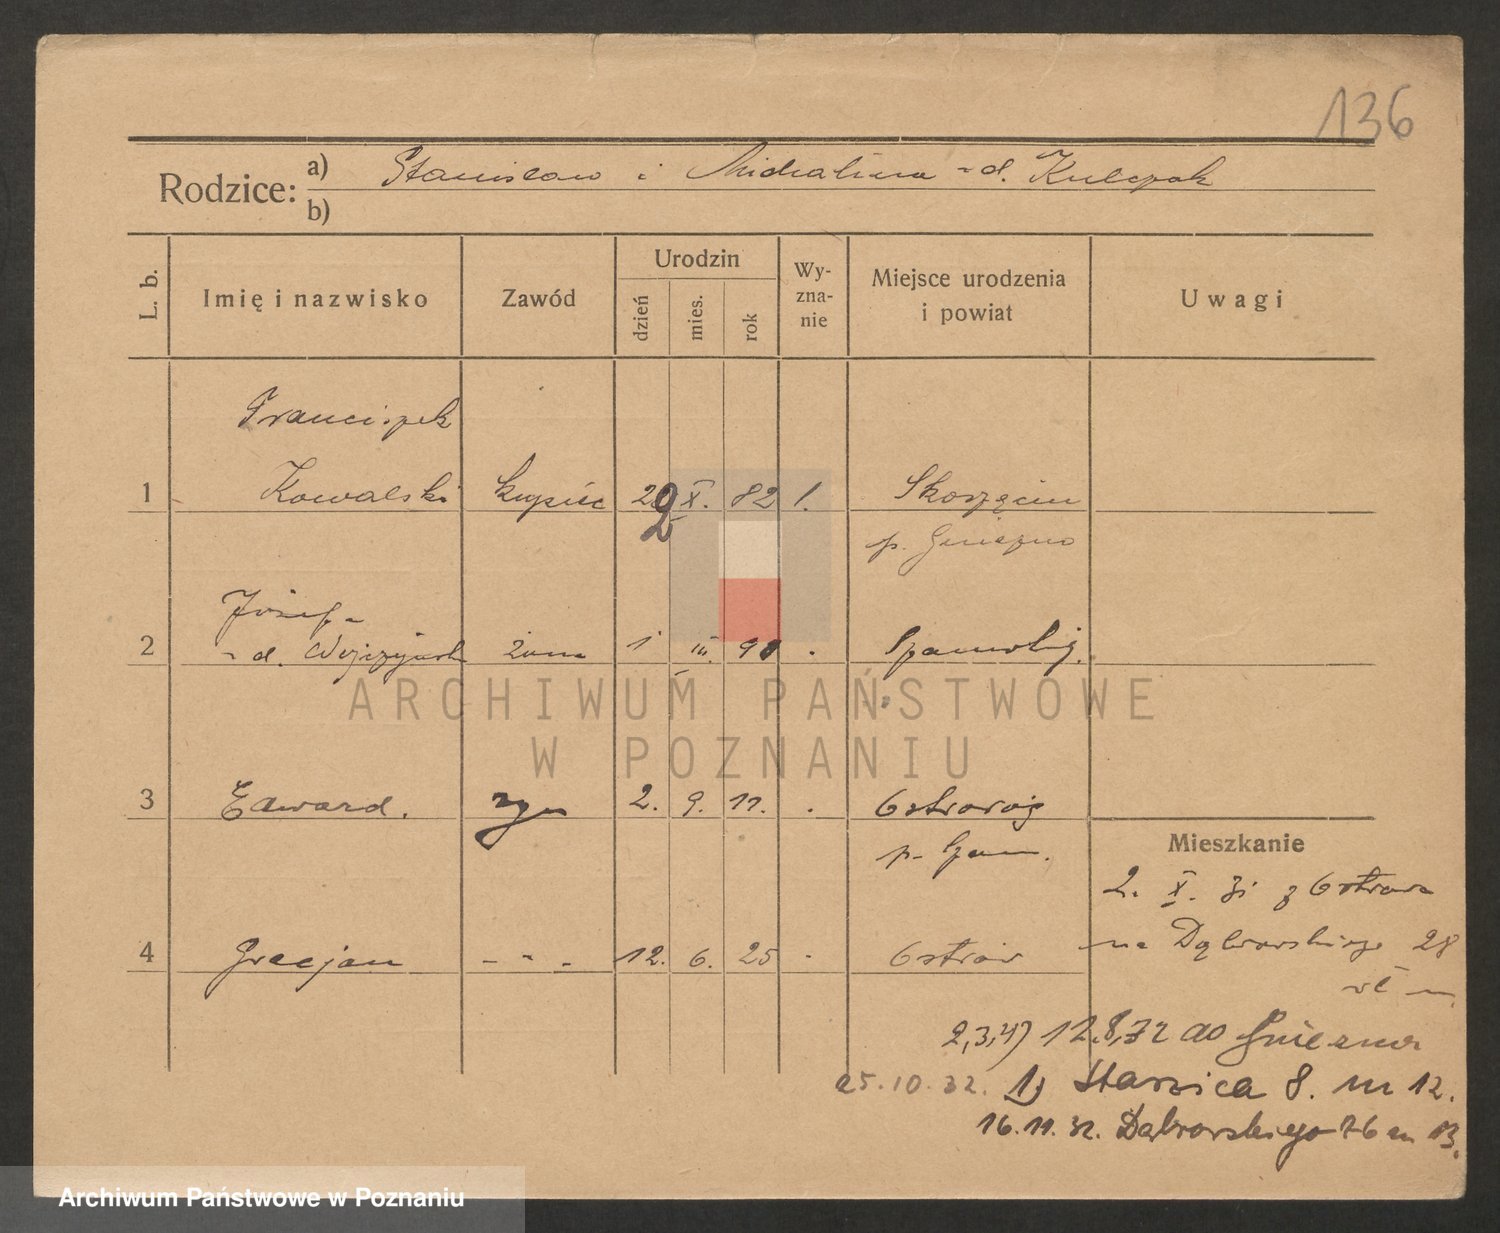 136
Rodzice: a) Stanisław i Michalina - d. Kulczak
b)
L. b.
Imię i nazwisko
Zawód
Urodzin
dzień
mies.
rok
Wy-
zna-
nie
Miejsce urodzenia
i powiat
Uwagi
Franciszek
1 Kowalski kupiec X. 82
p. Gniezno
Józefa
2 - d. żona 1 III.
3 Edward. 2. 9. 11. Ostroróg
p.
Mieszkanie
2. X. 31 z Ostrowa
4 Gracjan - - - 12. 6. 25 Ostrów
na Dąbrowskiego 28
2,3,4) 12.8,32 do Gniezna
25.10.32. 1) Staszica 8. m 12.
16.11.32. Dąbrowskiego 76 m 13.
ARCHIWUM PAŃSTWOWE
W POZNANIU
Archiwum Państwowe w Poznaniu